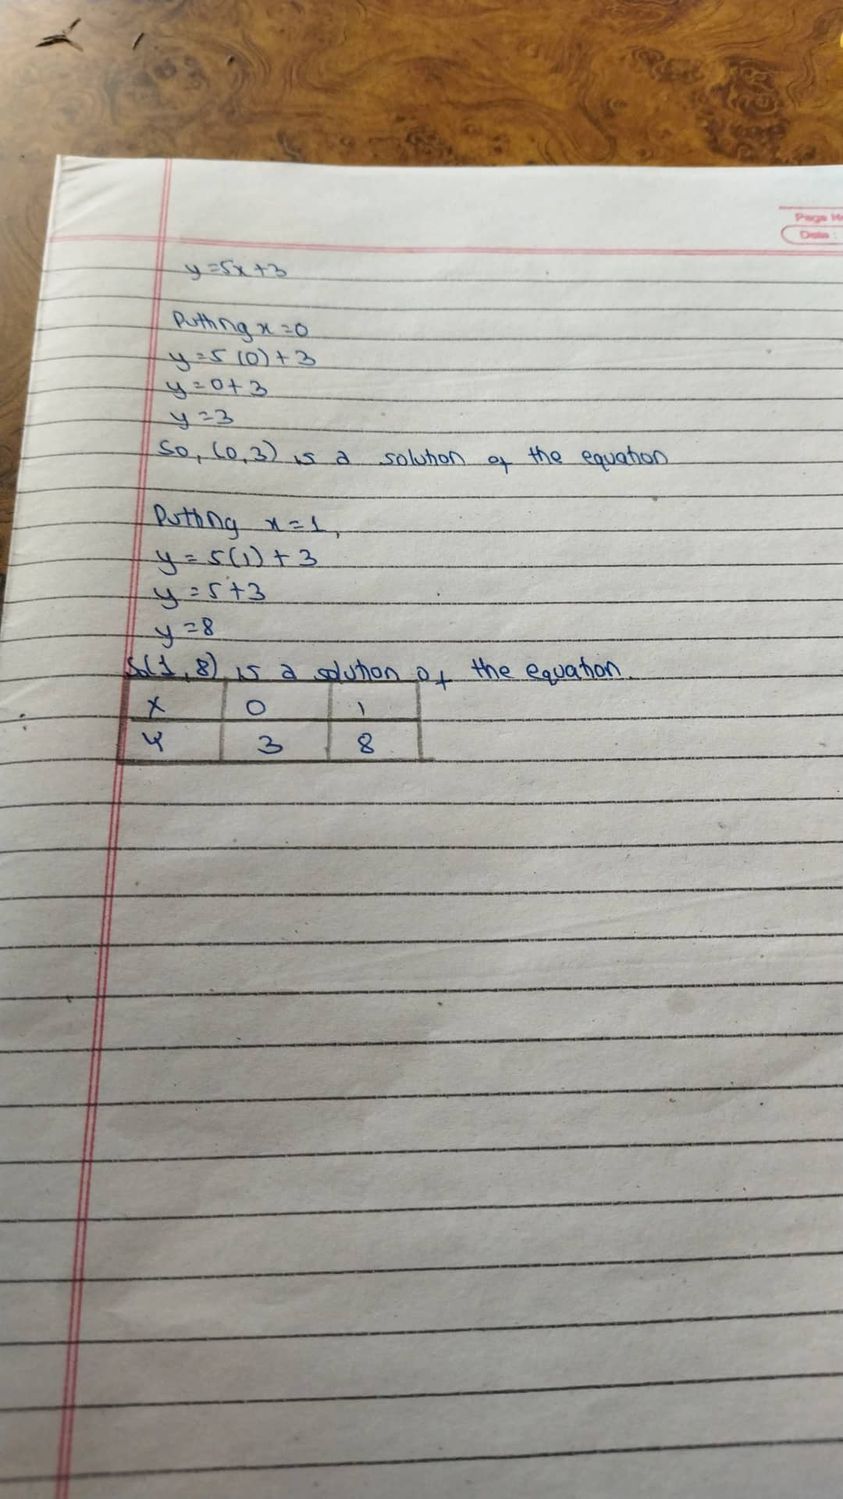 Date :
y=5x+3
Putting x=0
y=5(0)+3
y=0+3
y=3
So, (0,3) is a solution of the equation
Putting x=1,
y=5(1)+3
y=5+3
y=8
So(1,8) is a solution of the equation.
x 0 1
y 3 8